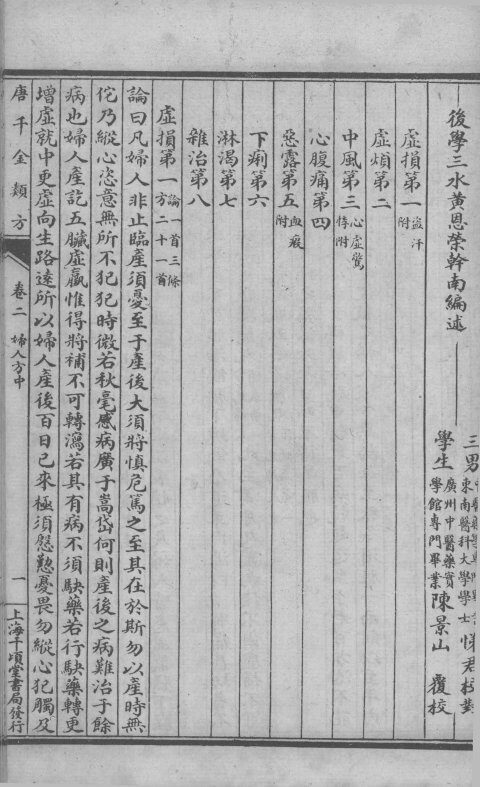 後學三水黃恩榮幹南編述
三男 東南醫科大學學士 悌君校對
學生 廣州中醫藥實學館專門畢業 陳景山 覆校
虛損第一 盜汗附
虛煩第二
中風第三 心虛驚悸附
心腹痛第四
惡露第五 血瘕附
下痢第六
淋渴第七
雜治第八
虛損第一 論一首三條方二十一首
論曰凡婦人非止臨產須憂至于產後大須將慎危篤之至其在於斯勿以產時無
佗乃縱心恣意無所不犯犯時微若秋毫感病廣于嵩岱何則產後之病難治于餘
病也婦人產訖五臟虛羸惟得將補不可轉瀉若其有病不須駃藥若行駃藥轉更
增虛就中更虛向生路遠所以婦人產後百日已來極須慇懃憂畏勿縱心犯觸及
唐千金類方 卷二 婦人方中 一 上海千頃堂書局發行